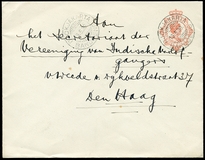 Aan
het Secretariaat der
Vereeniging van Indische Verlof
gangers
v. Wede v. Dykveldstraat 37
Den Haag